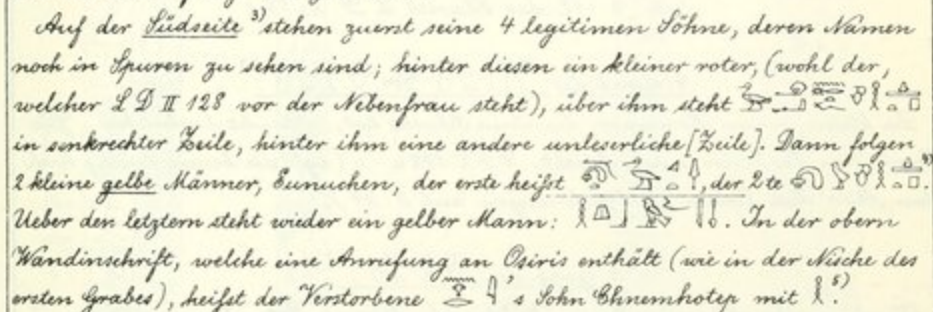 Auf der Südseite ³⁾ stehen zuerst seine 4 legitimen Söhne, deren Namen
noch in Spuren zu sehen sind; hinter diesen ein kleiner roter, (wohl der,
welcher L D II 128 vor der Nebenfrau steht), über ihm steht
in senkrechter Zeile, hinter ihm eine andere unleserliche [Zeile]. Dann folgen
2 kleine gelbe Männer, Eunuchen, der erste heißt , der 2te ⁴⁾.
Ueber den letztern steht wieder ein gelber Mann: . In der obern
Wandinschrift, welche eine Anrufung an Osiris enthält (wie in der Nische des
ersten Grabes), heißt der Verstorbene 's Sohn Chnemhotep mit ⁵⁾.